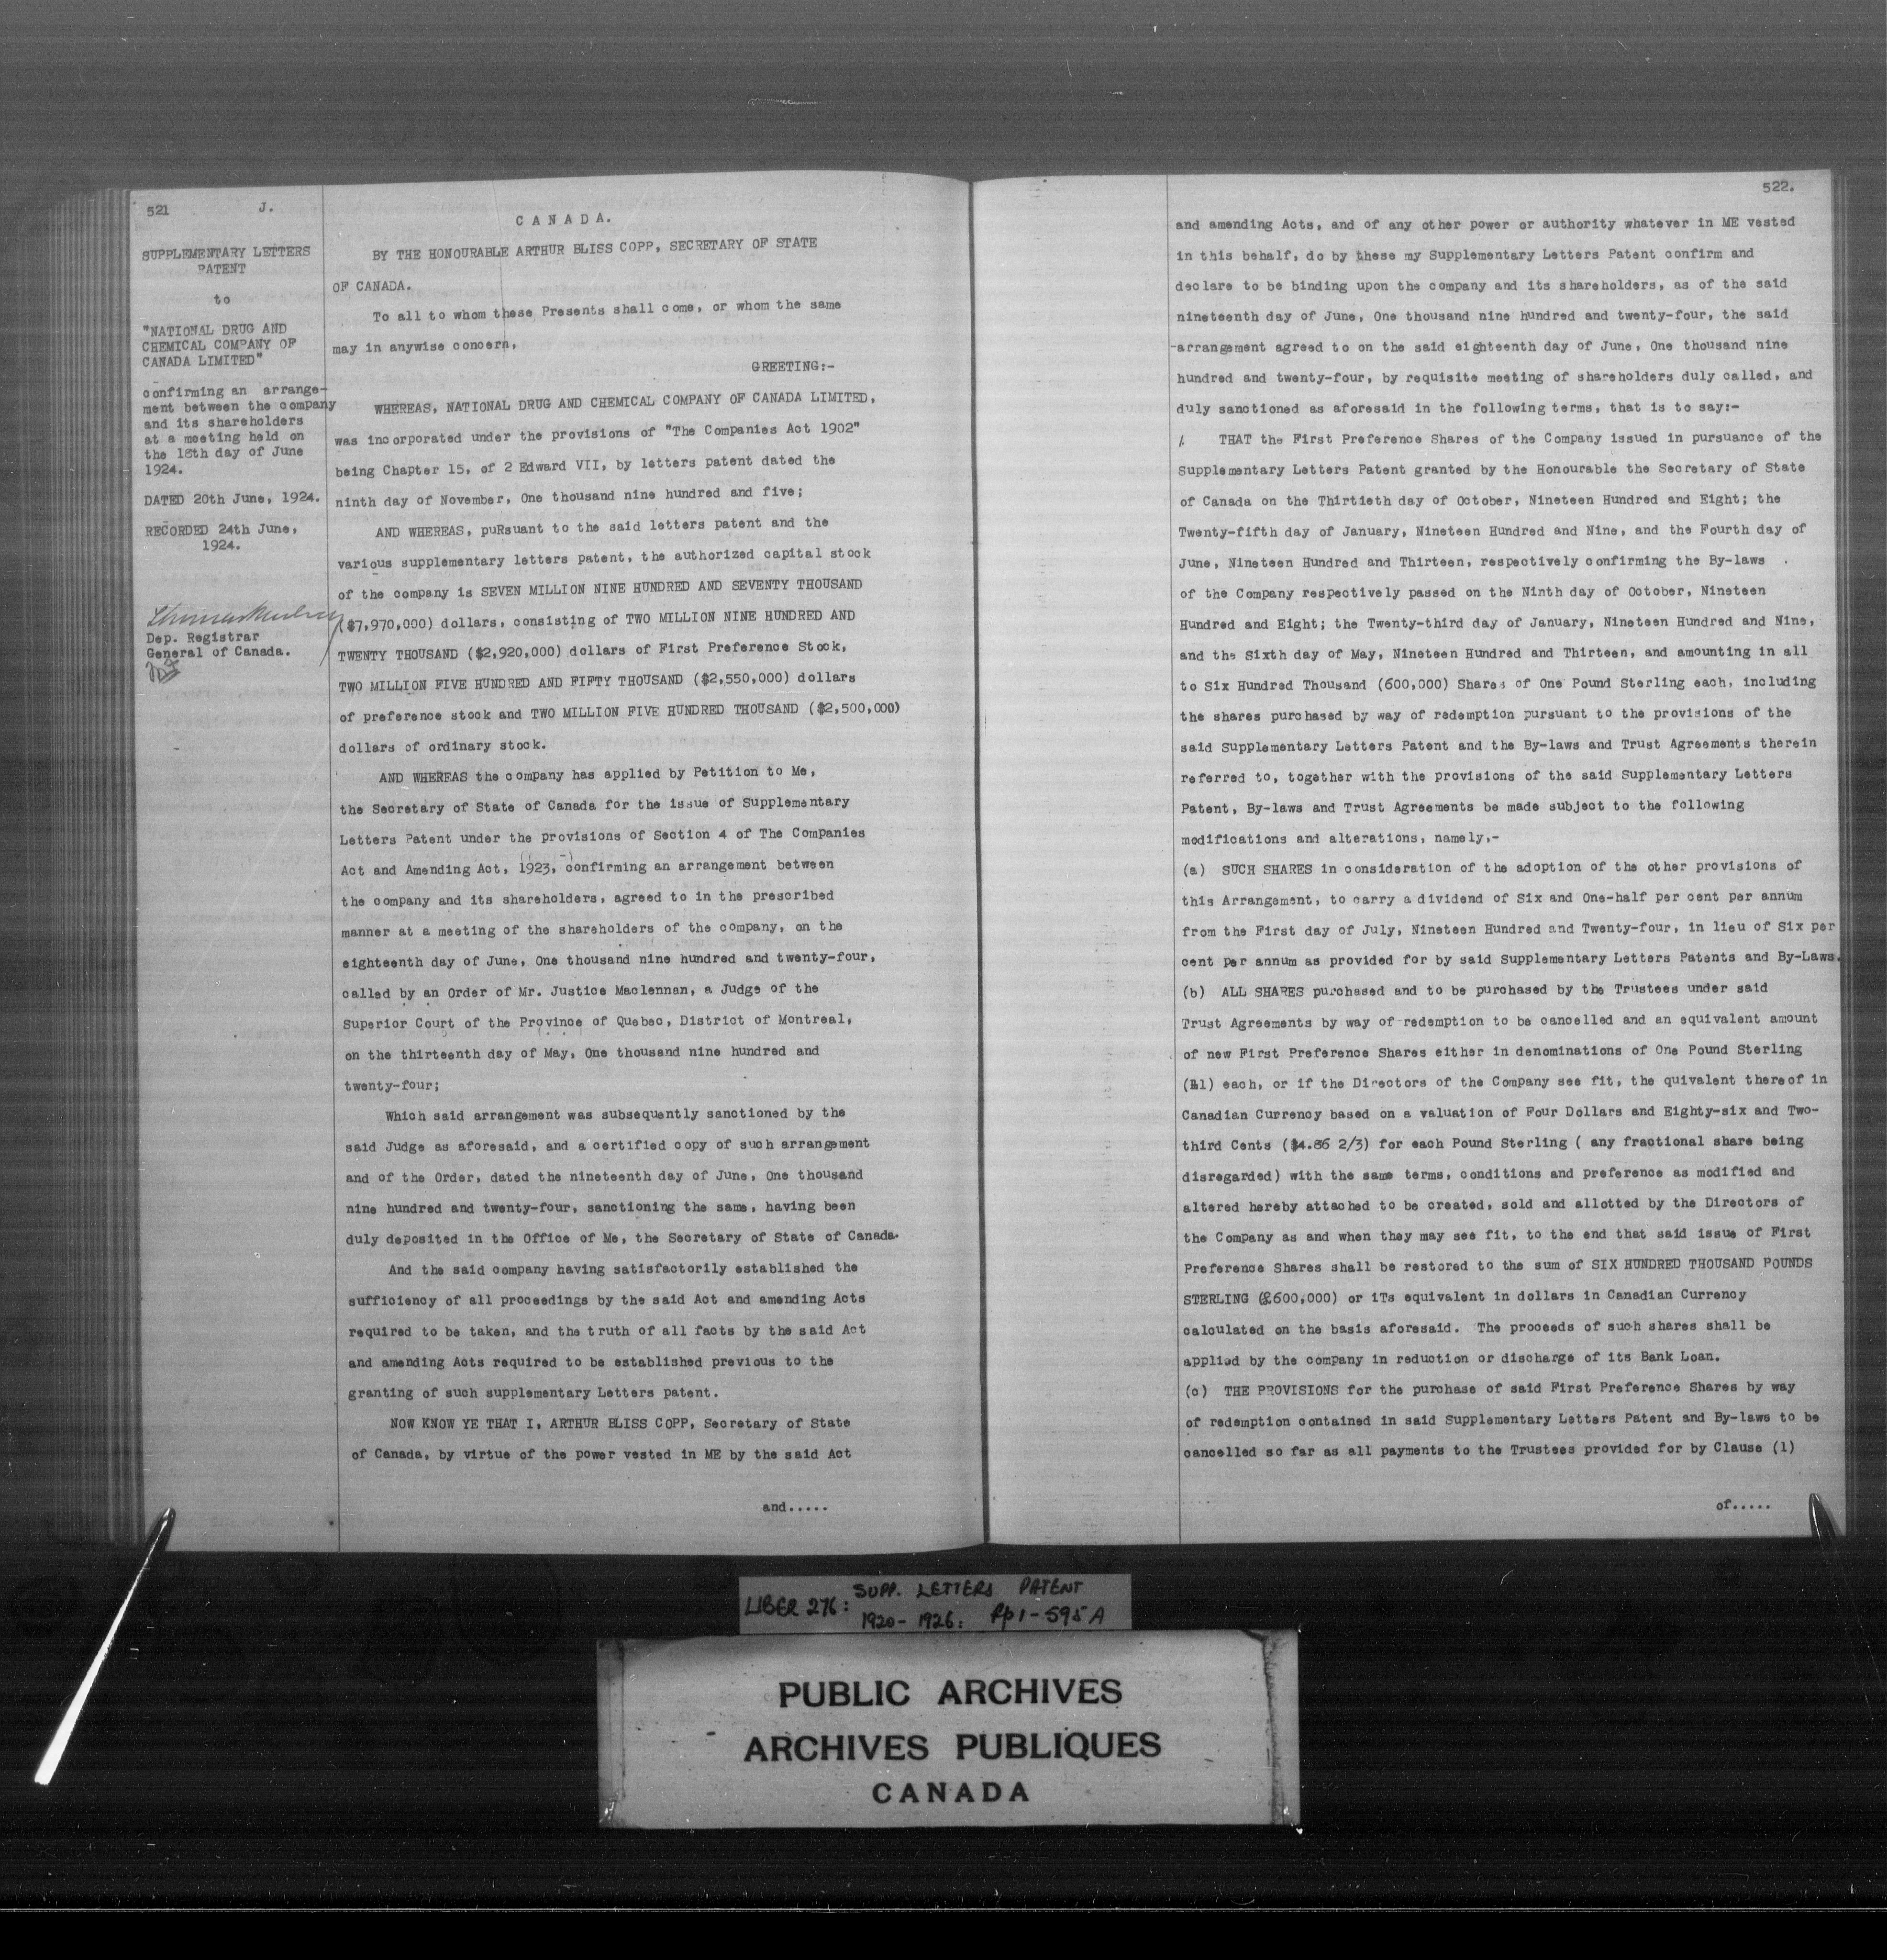 521 J.
SUPPLEMENTARY LETTERS
PATENT
to
"NATIONAL DRUG AND
CHEMICAL COMPANY OF
CANADA LIMITED"
confirming an arrange-
ment between the company
and its shareholders
at a meeting held on
the 18th day of June
1924.
DATED 20th June, 1924.
RECORDED 24th June,
1924.
Dep. Registrar
General of Canada.
CANADA.
BY THE HONOURABLE ARTHUR BLISS COPP, SECRETARY OF STATE
OF CANADA.
To all to whom these Presents shall come, or whom the same
may in anywise concern,
GREETING:-
WHEREAS, NATIONAL DRUG AND CHEMICAL COMPANY OF CANADA LIMITED,
was incorporated under the provisions of "The Companies Act 1902"
being Chapter 15, of 2 Edward VII, by letters patent dated the
ninth day of November, One thousand nine hundred and five;
AND WHEREAS, puRsuant to the said letters patent and the
various supplementary letters patent, the authorized capital stock
of the company is SEVEN MILLION NINE HUNDRED AND SEVENTY THOUSAND
($7,970,000) dollars, consisting of TWO MILLION NINE HUNDRED AND
TWENTY THOUSAND ($2,920,000) dollars of First Preference Stock,
TWO MILLION FIVE HUNDRED AND FIFTY THOUSAND ($2,550,000) dollars
of preference stock and TWO MILLION FIVE HUNDRED THOUSAND ($2,500,000)
dollars of ordinary stock.
AND WHEREAS the company has applied by Petition to Me,
the Secretary of State of Canada for the issue of Supplementary
Letters Patent under the provisions of Section 4 of The Companies
Act and Amending Act, 1923, confirming an arrangement between
the company and its shareholders, agreed to in the prescribed
manner at a meeting of the shareholders of the company, on the
eighteenth day of June, One thousand nine hundred and twenty-four,
called by an Order of Mr. Justice Maclennan, a Judge of the
Superior Court of the Province of Quebec, District of Montreal,
on the thirteenth day of May, One thousand nine hundred and
twenty-four;
Which said arrangement was subsequently sanctioned by the
said Judge as aforesaid, and a certified copy of such arrangement
and of the Order, dated the nineteenth day of June, One thousand
nine hundred and twenty-four, sanctioning the same, having been
duly deposited in the Office of Me, the Secretary of State of Canada.
And the said company having satisfactorily established the
sufficiency of all proceedings by the said Act and amending Acts
required to be taken, and the truth of all facts by the said Act
and amending Acts required to be established previous to the
granting of such supplementary Letters patent.
NOW KNOW YE THAT I, ARTHUR BLISS COPP, Secretary of State
of Canada, by virtue of the power vested in ME by the said Act
and.....
522.
and amending Acts, and of any other power or authority whatever in ME vested
in this behalf, do by these my Supplementary Letters Patent confirm and
declare to be binding upon the company and its shareholders, as of the said
nineteenth day of June, One thousand nine hundred and twenty-four, the said
-arrangement agreed to on the said eighteenth day of June, One thousand nine
hundred and twenty-four, by requisite meeting of shareholders duly called, and
duly sanctioned as aforesaid in the following terms, that is to say:-
1. THAT the First Preference Shares of the Company issued in pursuance of the
Supplementary Letters Patent granted by the Honourable the Secretary of State
of Canada on the Thirtieth day of October, Nineteen Hundred and Eight; the
Twenty-fifth day of January, Nineteen Hundred and Nine, and the Fourth day of
June, Nineteen Hundred and Thirteen, respectively confirming the By-laws
of the Company respectively passed on the Ninth day of October, Nineteen
Hundred and Eight; the Twenty-third day of January, Nineteen Hundred and Nine,
and the Sixth day of May, Nineteen Hundred and Thirteen, and amounting in all
to Six Hundred Thousand (600,000) Shares of One Pound Sterling each, including
the shares purchased by way of redemption pursuant to the provisions of the
said Supplementary Letters Patent and the By-laws and Trust Agreements therein
referred to, together with the provisions of the said Supplementary Letters
Patent, By-laws and Trust Agreements be made subject to the following
modifications and alterations, namely,-
(a) SUCH SHARES in consideration of the adoption of the other provisions of
this Arrangement, to carry a dividend of Six and One-half per cent per annum
from the First day of July, Nineteen Hundred and Twenty-four, in lieu of Six per
cent per annum as provided for by said Supplementary Letters Patents and By-Laws.
(b) ALL SHARES purchased and to be purchased by the Trustees under said
Trust Agreements by way of redemption to be cancelled and an equivalent amount
of new First Preference Shares either in denominations of One Pound Sterling
(£1) each, or if the Directors of the Company see fit, the quivalent thereof in
Canadian Currency based on a valuation of Four Dollars and Eighty-six and Two-
third Cents ($4.86 2/3) for each Pound Sterling ( any fractional share being
disregarded) with the same terms, conditions and preference as modified and
altered hereby attached to be created, sold and allotted by the Directors of
the Company as and when they may see fit, to the end that said issue of First
Preference Shares shall be restored to the sum of SIX HUNDRED THOUSAND POUNDS
STERLING (£600,000) or iTs equivalent in dollars in Canadian Currency
calculated on the basis aforesaid. The proceeds of such shares shall be
applied by the company in reduction or discharge of its Bank Loan.
(c) THE PROVISIONS for the purchase of said First Preference Shares by way
of redemption contained in said Supplementary Letters Patent and By-laws to be
cancelled so far as all payments to the Trustees provided for by Clause (1)
of.....
LIBER 276: SUPP. LETTERS PATENT
1920-1926: pp 1-595A
PUBLIC ARCHIVES
ARCHIVES PUBLIQUES
CANADA